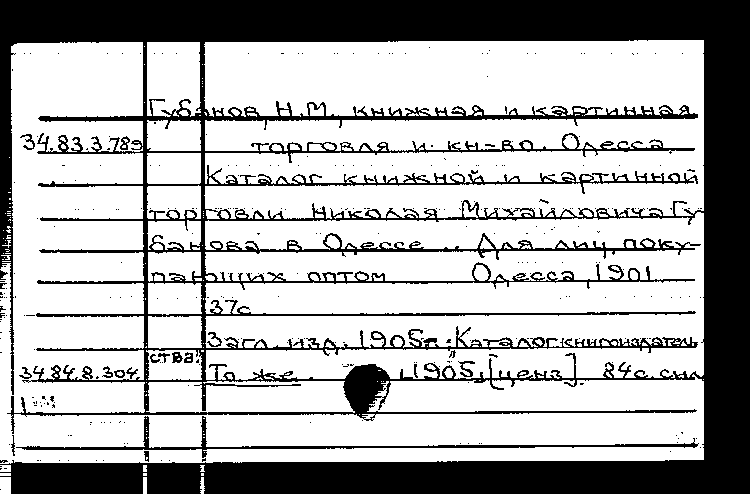 Губанов, Н.М., книжная и картинная
34.83.3.789. торговля и кн-во. Одесса.
Каталог книжной и картинной
торговли Николая Михайловича Гу-
банова в Одессе .. Для лиц, поку-
пающих оптом. Одесса, 1901
37с.
Загл. изд. 1905г.: "Каталог книгоиздатель-
ства"
34.84.8.304. То же. 1905, [ценз]. 84с.